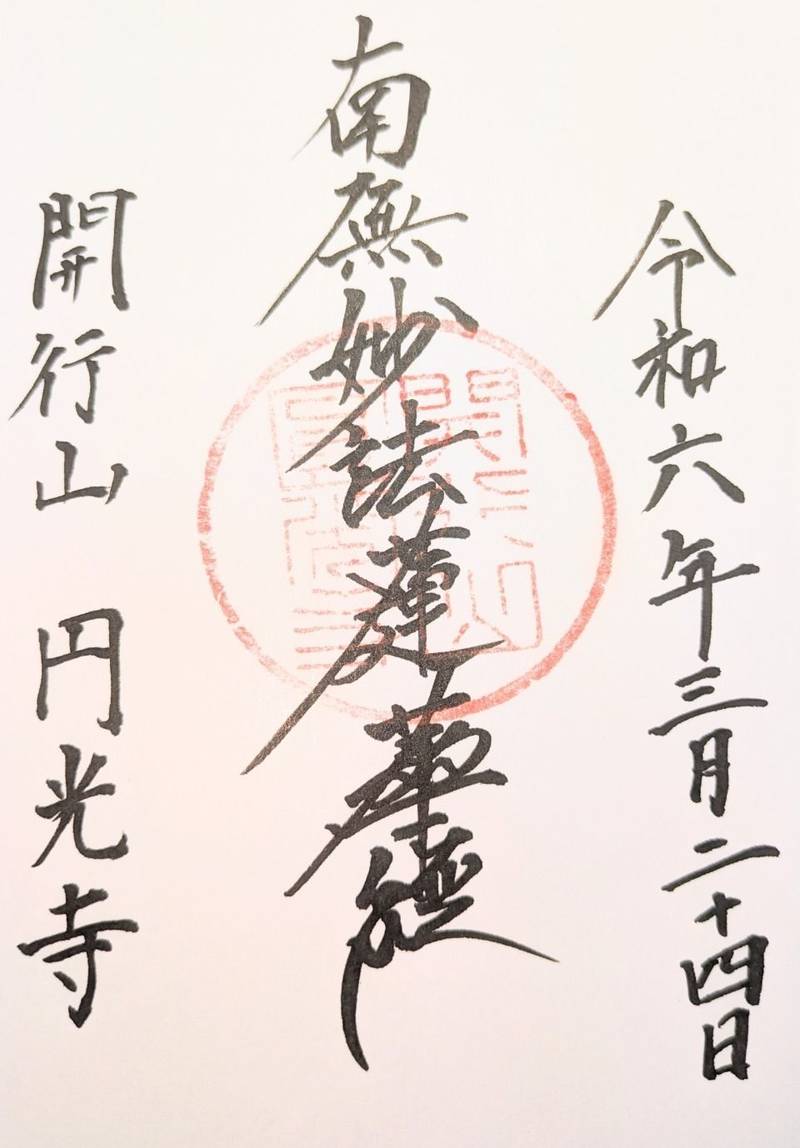 令和六年三月二十四日
南無妙法蓮華経
開行山 円光寺